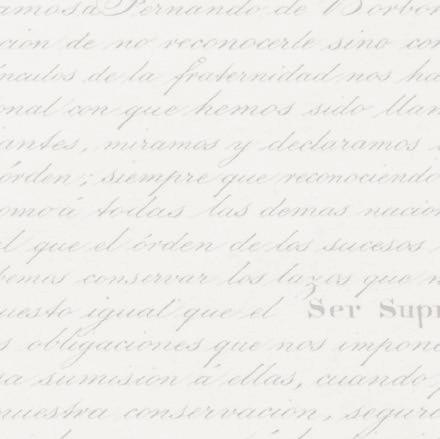 Fernando de Borbon
de no reconocerle sino con
de la fraternidad nos ha
con que hemos sido llam
miramos y declaramos
órden; siempre que reconociendo
como á todas las demas nacio
que el órden de los sucesos
conservar los lazos que n
igual que el Ser Supr
obligaciones que nos impon
sumision á ellas, cuando
nuestra conservacion, segur